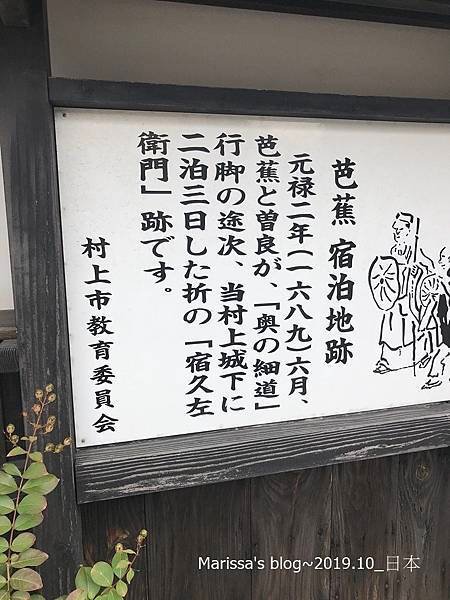 芭蕉 宿泊地跡
元禄二年(一六八九)六月、
芭蕉と曽良が、「奥の細道」
行脚の途次、当村上城下に
二泊三日した折の「宿久左
衛門」跡です。
村上市教育委員会
Marissa's blog~2019.10_日本